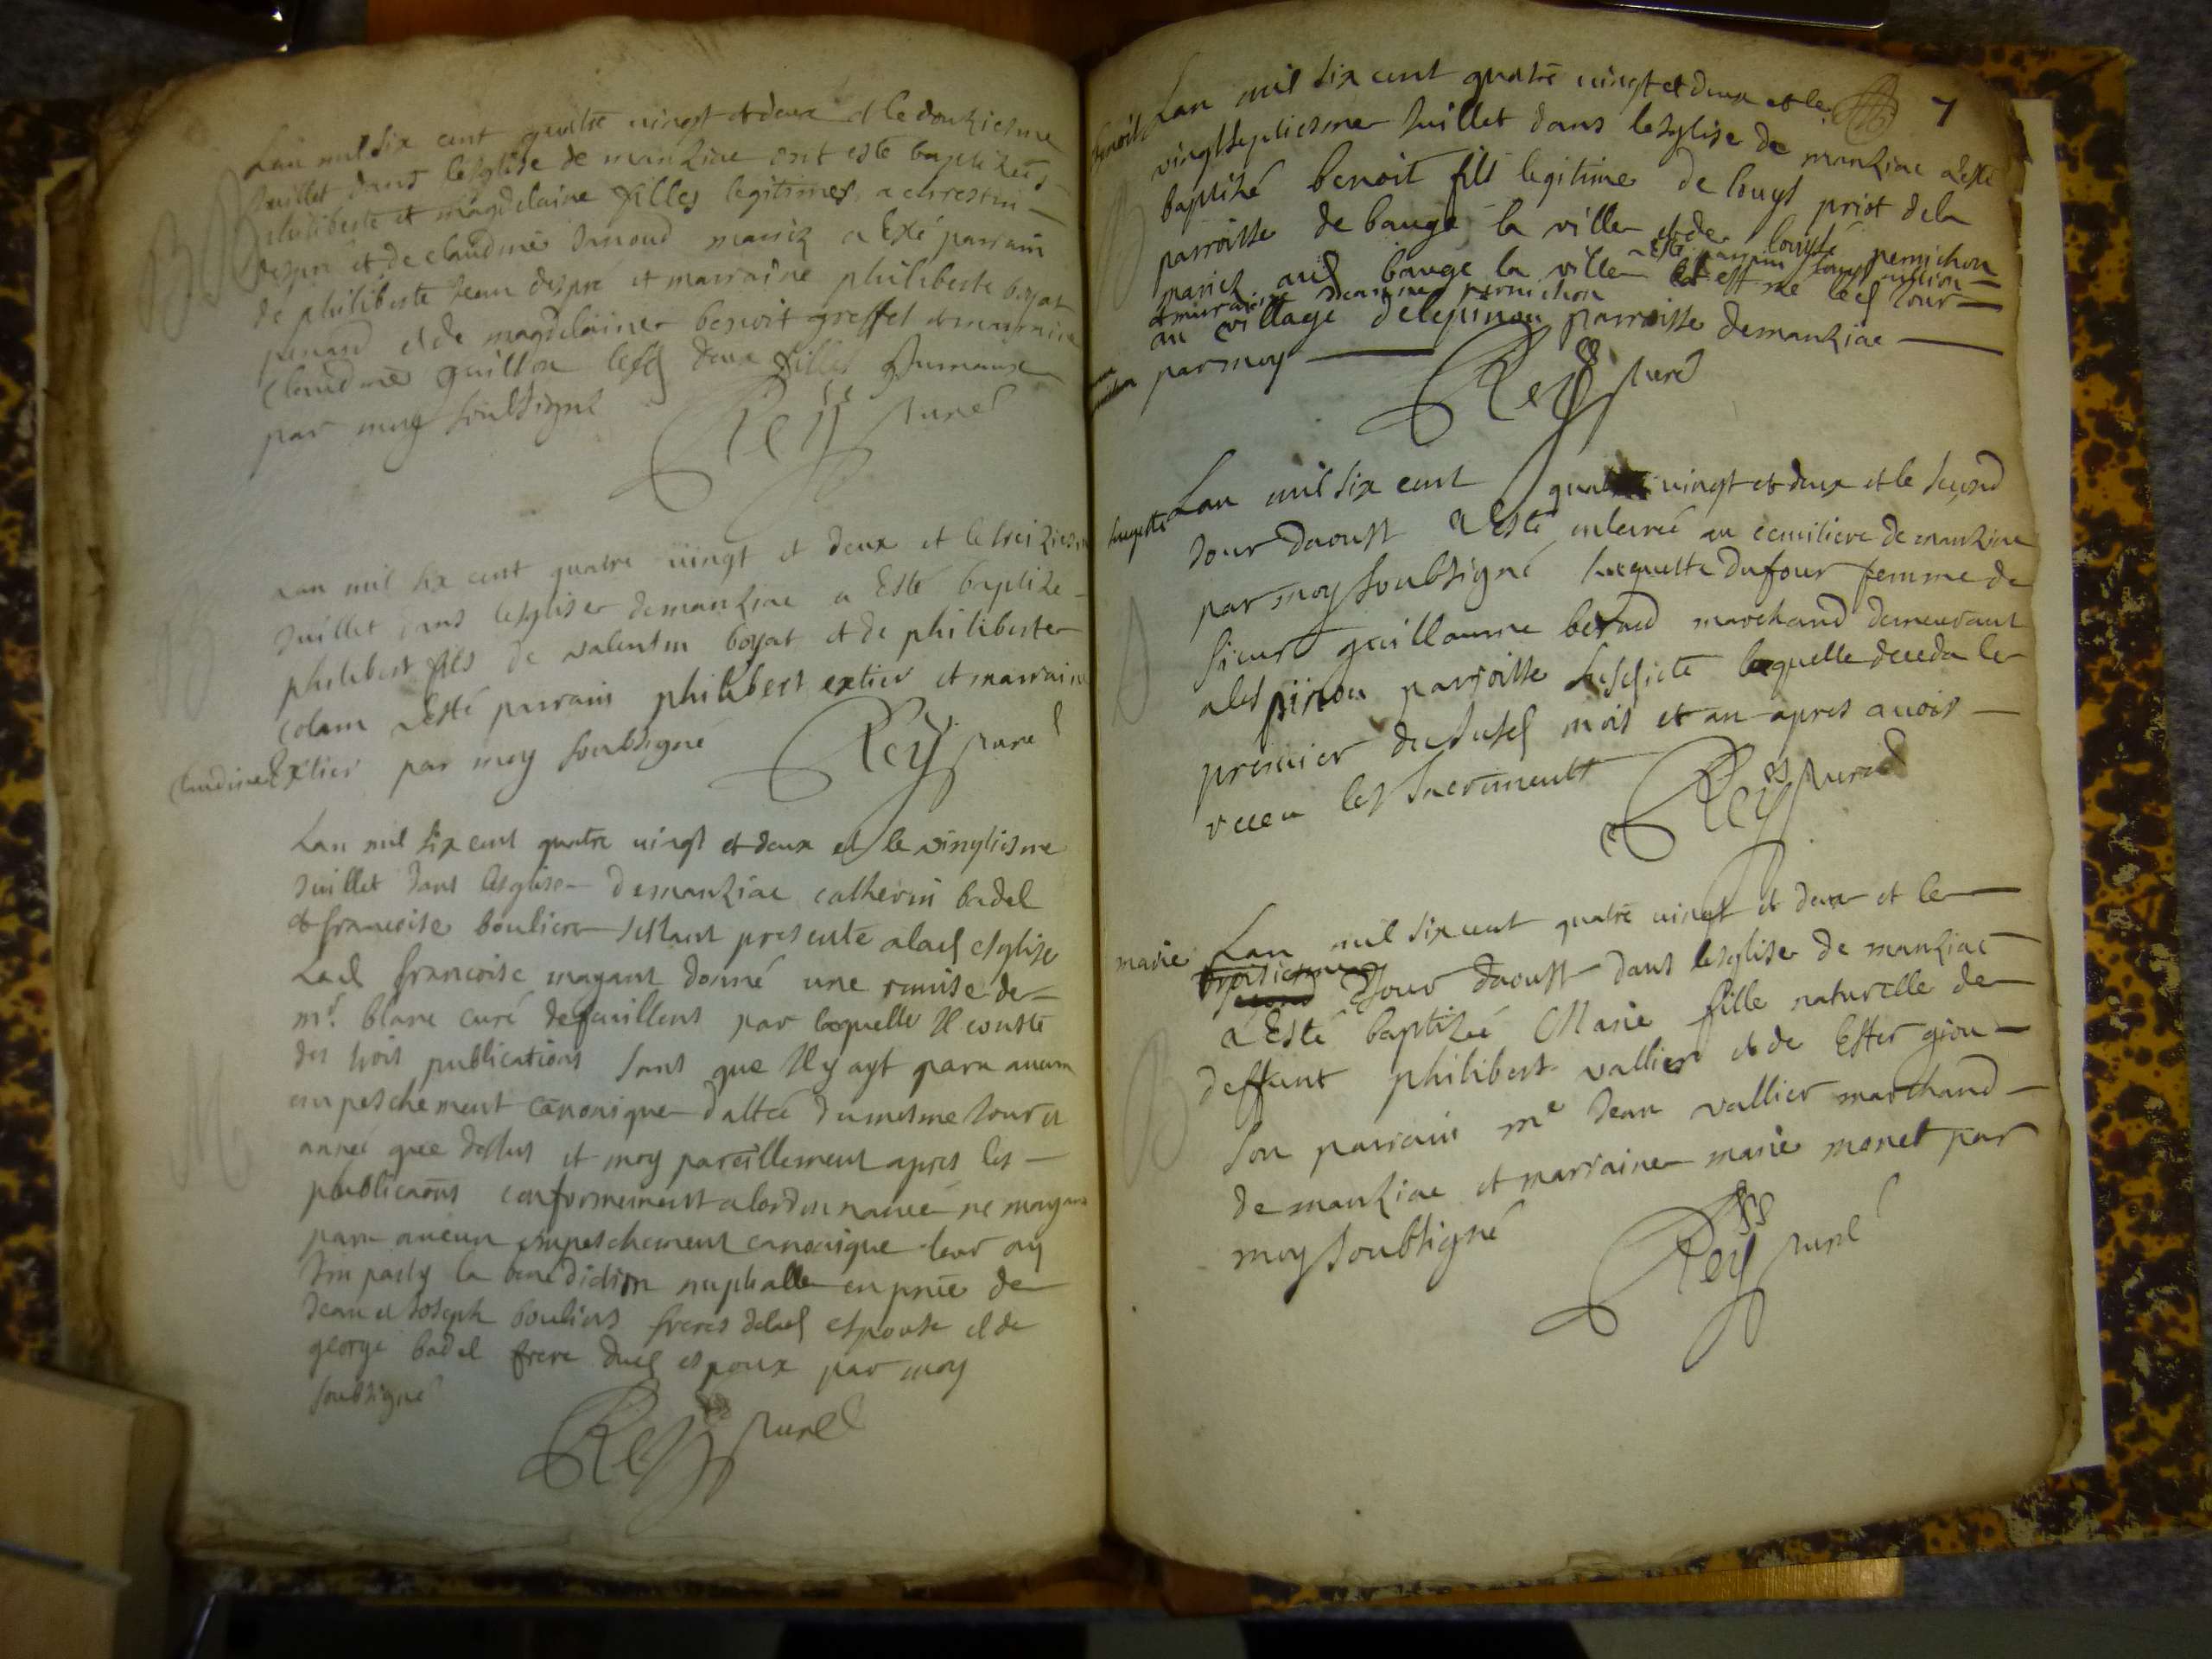 Lan mil six cent quattre vingt et deux et le douziesme
Juillet dans lesglise de manziac ont esté baptizées
philiberte et magdelaine filles legitimes a
despre et de claudine Janoud mariez a Esté parrain
de philiberte Jean despre et marraine philiberte boyat
penard et de magdelaine benoit greffet et marraine
Claudine guillon lesd deux filles Jumaux
par moy soubsigné
Rey curé
Lan mil six cent quatre vingt et deux et le treiziesm
Juillet dans lesglise de manziac a Esté baptize
philibert fils de valentin boyat et de philiberte
colam a esté parrain philibert extier et marraine
claudine Extier par moy soubsigné
Rey curé
Lan mil six cent quatre vingt et deux et le vingtisme
Juillet dans lesglise de manziac catherin badel
et francoise bouliere sestant presenté a lad esglise
Lad francoise mayant donné une remise de
mr. blanc curé defeuillens par laquelle Il conste
des trois publications sans que Il y ayt paru aucun
empeschement canonique dattée du mesme Jour et
année que dessus et moy pareillement apres les
publicaons conformement a lordonnance ne mayant
paru aucun empeschement canonique leur ay
Imparty la benediction nuptialle en pnce de
Jean et Joseph bouliers freres delad espouse et de
george badel frere dud espoux par moy
soubsigné
Rey curé
7
benoit
Lan mil six cent quatre vingt et deux et le
vingtseptiesme Juillet dans lesglise de manziac a esté
baptizé benoit fils legitime de louys priot dela
parroisse de baugé la ville et de louyse pernichon
mariez aud baugé la ville a esté parrain louys
et marraine Jeanne pernichon et est né led Jour
au village delepinou parroisse de manziac
par moy
Rey curé
huguette
Lan mil six cent quatre vingt et deux et le second
Jour daoust a Esté enterrée au cemitiere de manziac
par moy soubsigné huguette dufour femme de
sieur guillaume berard marchand demeurant
a lespinou parroisse susdicte laquelle deceda le
premier du susd mois et an apres avoir
receu les sacrements
Rey curé
marie
Lan mil six cent quatre vingt et deux et le
troisiesme Jour daoust dans lesglise de manziac
a Esté baptizée Marie fille naturelle de
deffunt philibert vallier et de Ester giou
son parrain me Jean vallier marchand
de manziac et marraine marie monet par
moy soubsigné
Rey curé